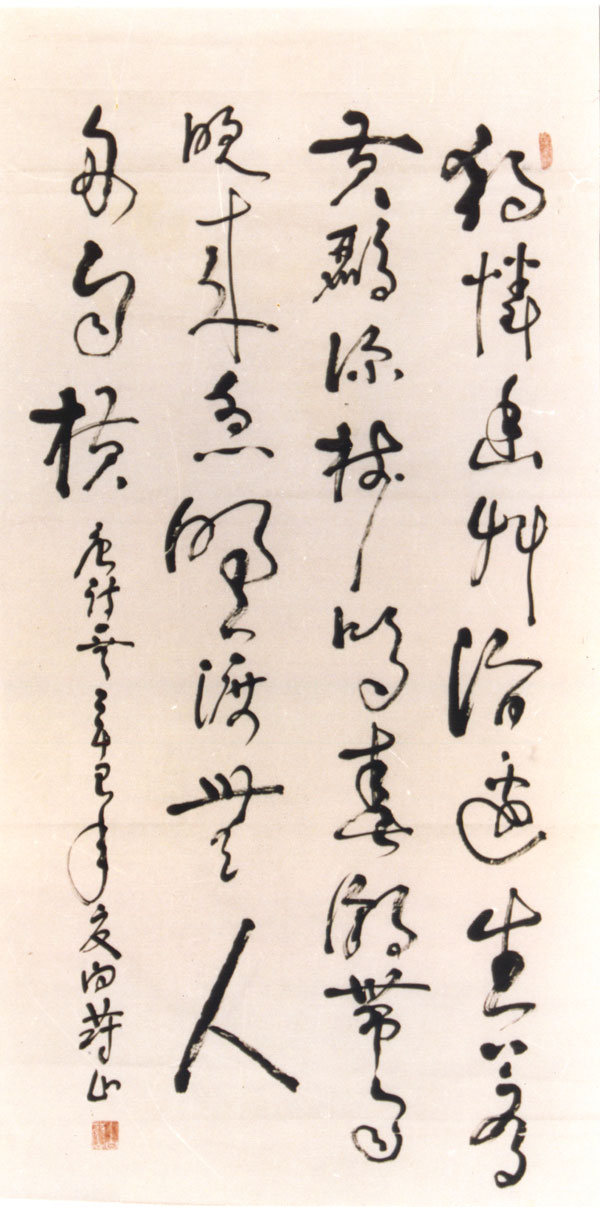 獨憐幽草澗邊生上有
黃鸝深樹鳴春潮帶雨
晚來急野渡無人
舟自橫 唐詩 辛巳年夏